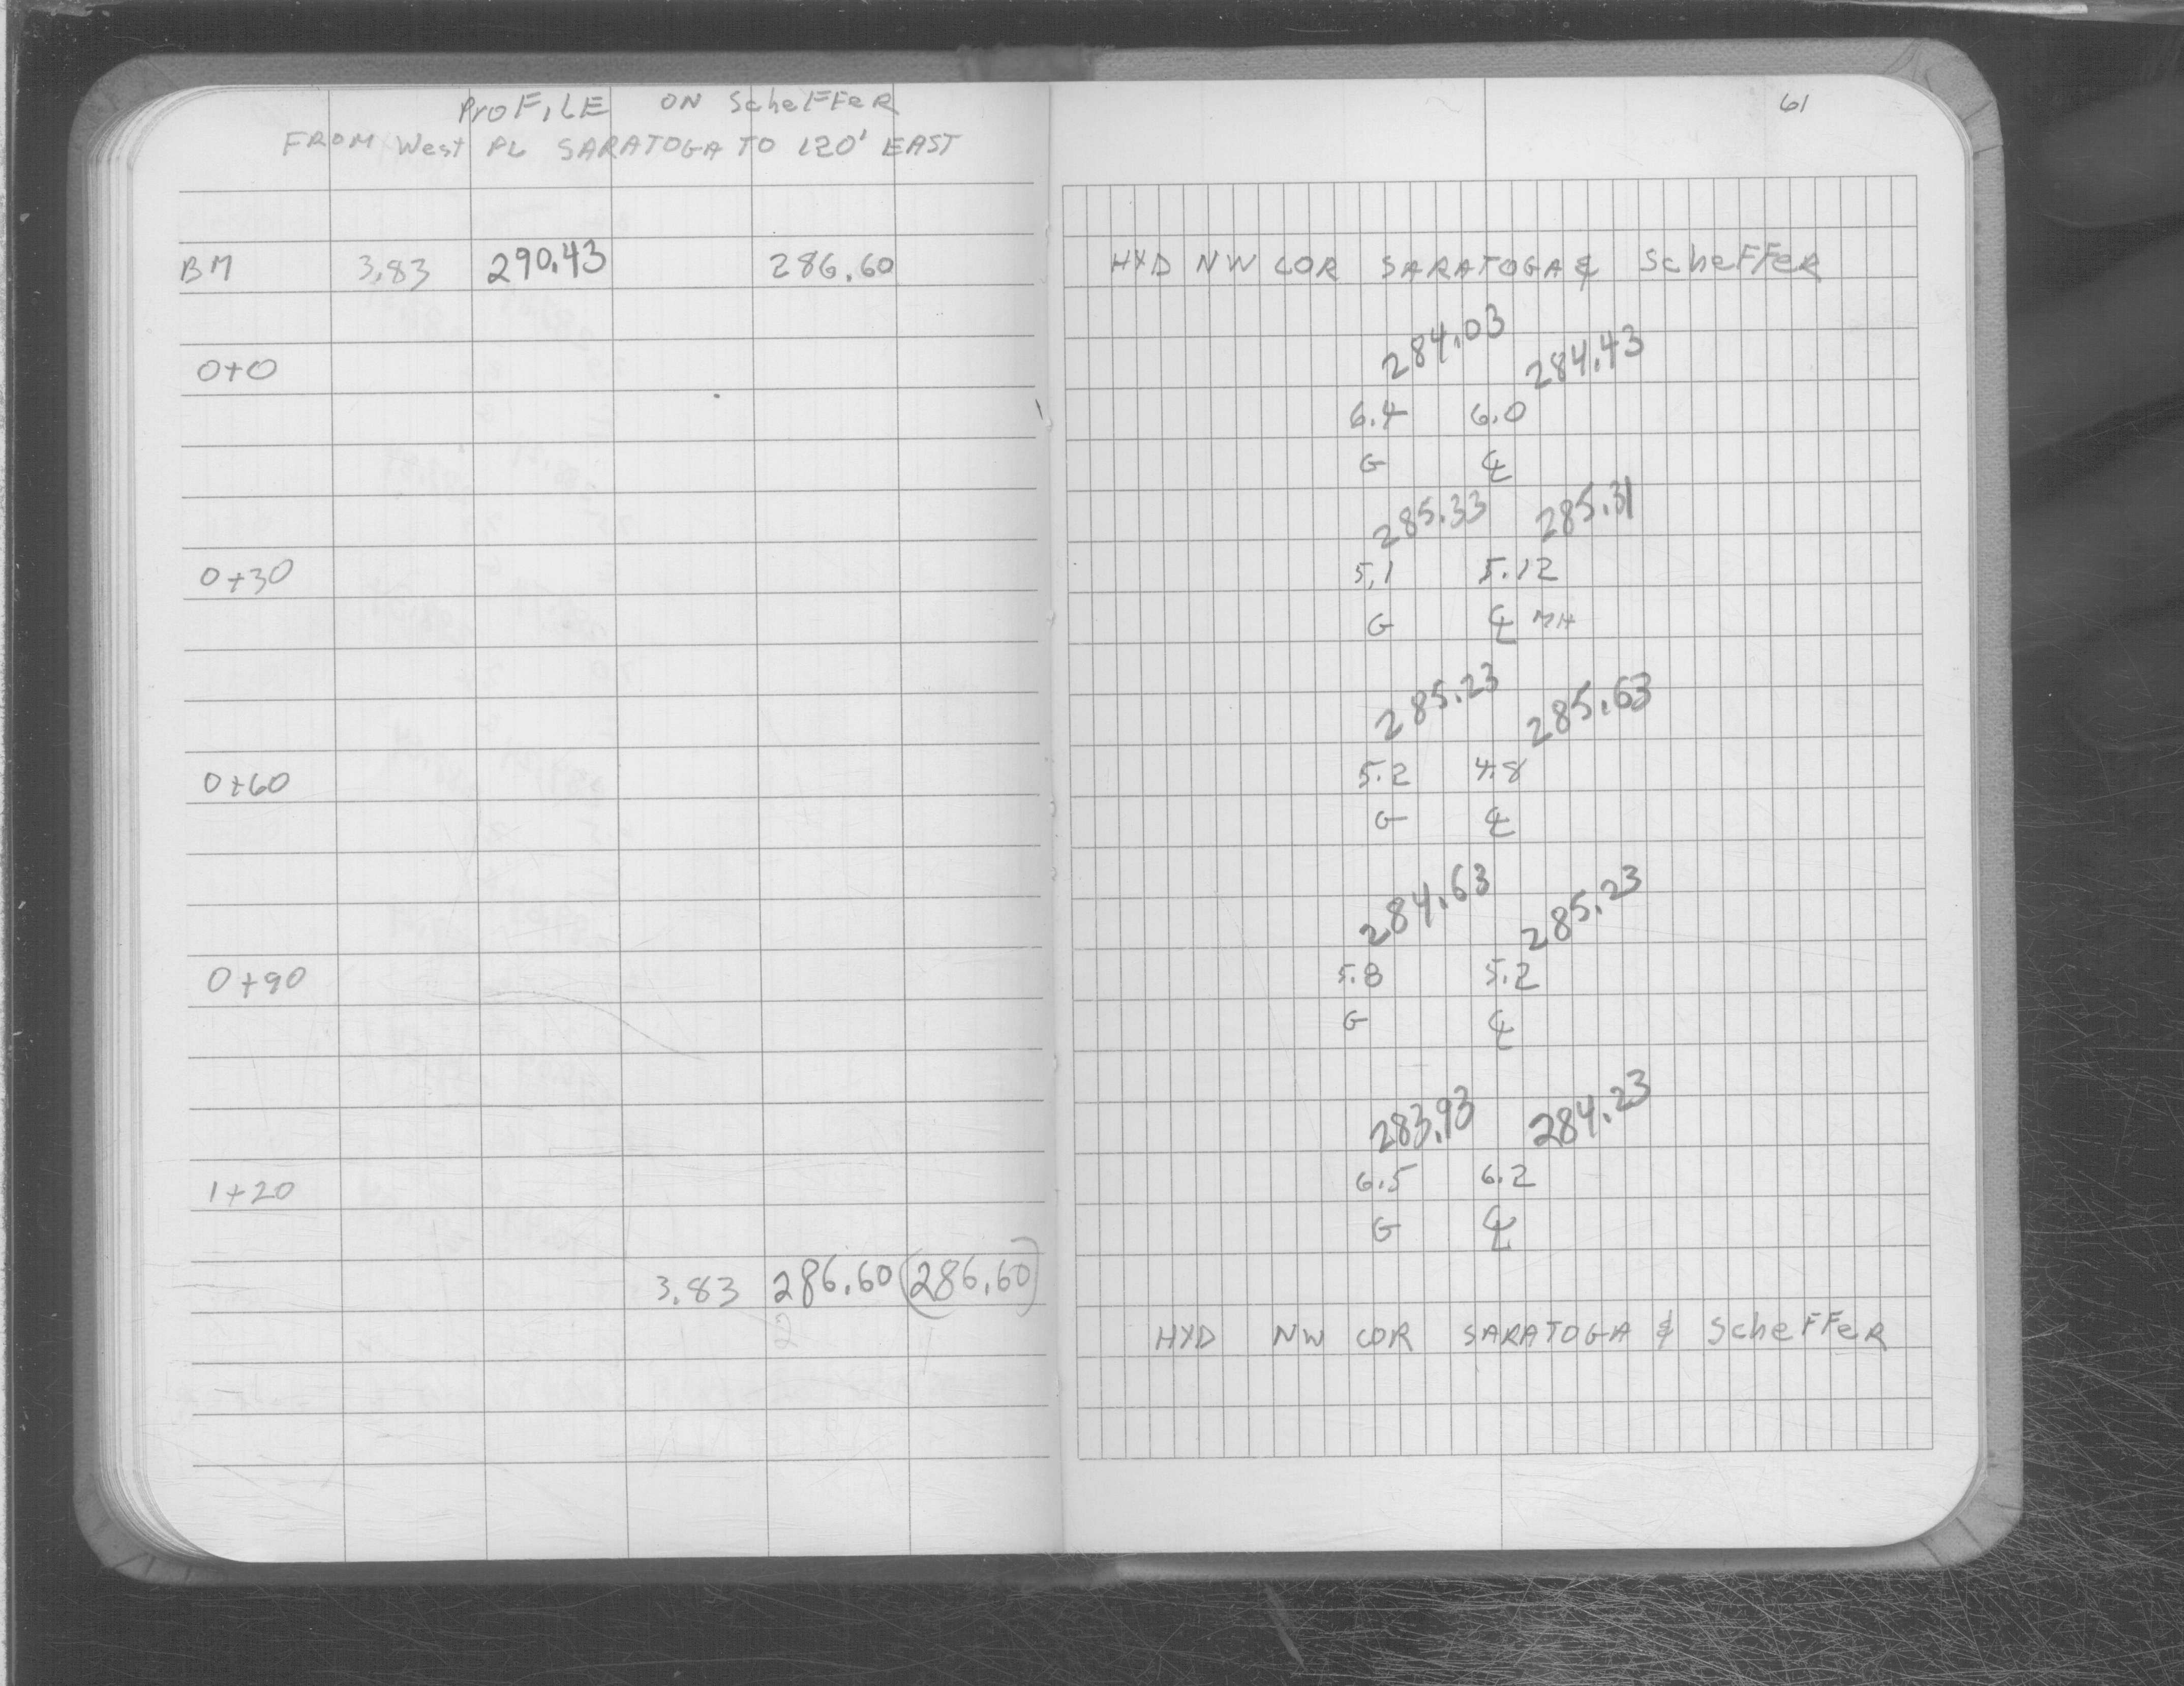 PROFILE ON SCHEFFER
FROM West PL SARATOGA TO 120' EAST
BM 3.83 290.43 286.60
0+0
0+30
0+60
0+90
1+20
3.83 286.60 (286.60)
2
61
HYD NW COR SARATOGA & SCHEFFER
284.03 284.43
6.4 6.0
G ℄
285.33 285.31
5.1 5.12
G ℄ MH
285.23 285.63
5.2 4.8
G ℄
284.63 285.23
5.8 5.2
G ℄
283.93 284.23
6.5 6.2
G ℄
HYD NW COR SARATOGA & SCHEFFER